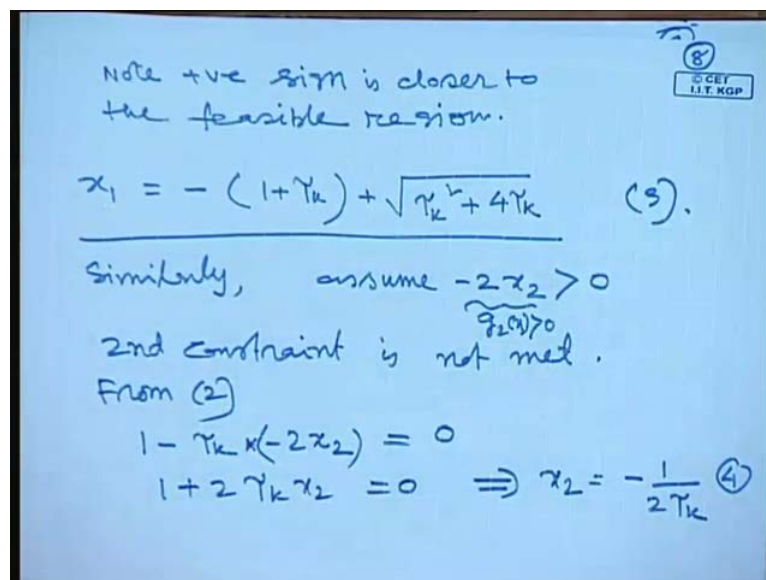 8
© CET
I.I.T. KGP
Note +ve sign is closer to
the feasible region.
x₁ = - (1+γₖ) + √(γₖ² + 4γₖ) (3).
Similarly, assume -2x₂ > 0
g₂(x)>0
2nd constraint is not met.
From (2)
1 - γₖ×(-2x₂) = 0
1 + 2γₖx₂ = 0 ⇒ x₂ = - 1/2γₖ (4)